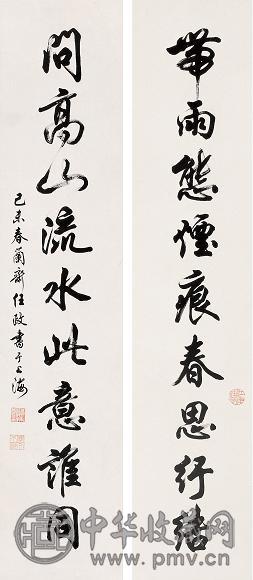 帶雨態煙痕春思紆結
問高山流水此意誰同
己未春蘭齋任政書于上海
中华收藏网
www.pmv.cn